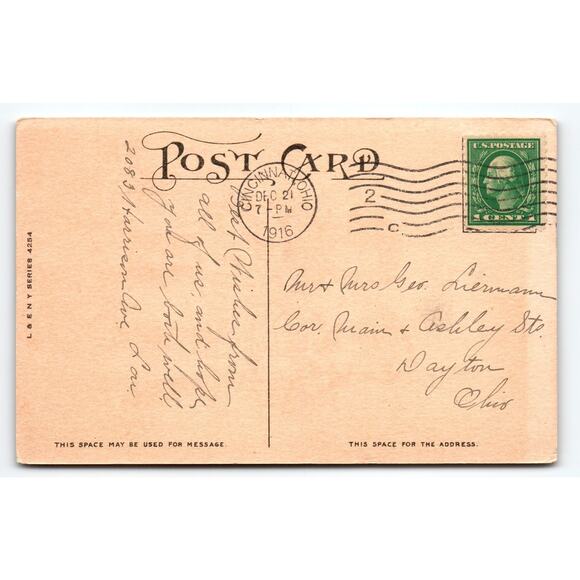 POST CARD
CINCINNATI, OHIO
DEC 21
7-PM
1916
2
C
U.S. POSTAGE
1 CENT 1
Best Wishes from
all of us, and hope
you are both well.
2083 Harrison Ave.
Mr & Mrs Geo. Liermann
Cor. Main & Ashley Sts.
Dayton
Ohio
L & E N Y SERIES 4254
THIS SPACE MAY BE USED FOR MESSAGE.
THIS SPACE FOR THE ADDRESS.